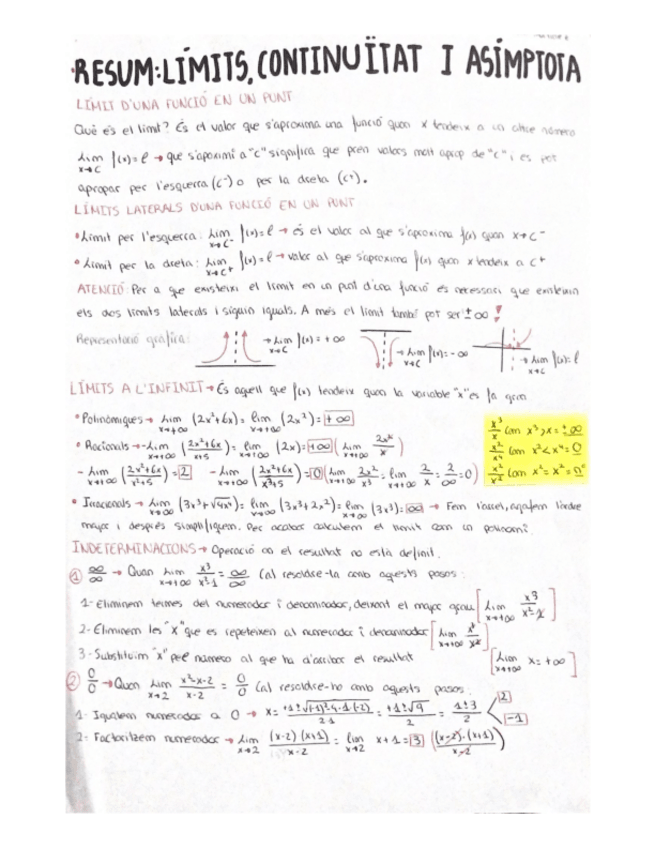 RESUM: LÍMITS, CONTINUÏTAT I ASÍMPTOTA
LÍMIT D'UNA FUNCIÓ EN UN PUNT
Què és el límit? És el valor que s'aproxima una funció quan x tendeix a un altre número
Lim x→c f(x)=l → que s'aproximi a "c" significa que pren valors molt aprop de "c" i es pot
apropar per l'esquerra (c⁻) o per la dreta (c⁺).
LÍMITS LATERALS D'UNA FUNCIÓ EN UN PUNT
• Límit per l'esquerra: Lim x→c⁻ f(x)=l → és el valor al que s'aproxima f(x) quan x→c⁻
• Límit per la dreta: Lim x→c⁺ f(x)=l → valor al que s'aproxima f(x) quan x tendeix a c⁺
ATENCIÓ: Per a que existeixi el límit en un punt d'una funció és necessari que existeixin
els dos límits laterals i siguin iguals. A més el límit també pot ser ±∞ !
Representació gràfica:
→ Lim x→c f(x)=+∞
→ Lim x→c f(x)=-∞
→ Lim x→c f(x)=l
LÍMITS A L'INFINIT → És aquell que f(x) tendeix quan la variable "x" es fa gran
• Polinòmiques → Lim x→+∞ (2x²+6x) = Lim x→+∞ (2x²) = +∞
• Racionals → - Lim x→+∞ (2x²+6x / x+5) = Lim x→+∞ (2x) = +∞ (Lim x→+∞ 2x²/x)
- Lim x→+∞ (2x²+6x / x²+5) = 2 - Lim x→+∞ (2x²+6x / x³+5) = 0 (Lim x→+∞ 2x²/x³ = Lim x→+∞ 2/x = 2/∞ = 0)
x³/x Com x³>x = ±∞
x²/x⁴ Com x²<x⁴ = 0
x²/x² Com x²=x² = nº
• Irracionals → Lim x→+∞ (3x³+√4x⁴) = Lim x→+∞ (3x³+2x²) = Lim x→+∞ (3x³) = ∞ → Fem l'arrel, agafem l'ordre
major i després simplifiquem. Per acabar calculem el límit com un polinomi.
INDETERMINACIONS → Operació on el resultat no està definit.
① ∞/∞ → Quan Lim x→+∞ x³/x²-1 = ∞/∞ Cal resoldre-la amb aquests passos:
1- Eliminem termes del numerador i denominador, deixant el major grau [Lim x→+∞ x³/x²-1]
2- Eliminem les "x" que es repeteixen al numerador i denominador [Lim x→+∞ x³/x²]
3- Substituïm "x" pel número al que ha d'arribar el resultat [Lim x→+∞ x=+∞]
② 0/0 → Quan Lim x→2 x²-x-2 / x-2 = 0/0 Cal resoldre-ho amb aquests passos:
1- Igualem numerador a 0 → x = +1±√(-1)²-4·1·(-2) / 2·1 = +1±√9 / 2 = 1±3 / 2 2 -1
2- Factoritzem numerador → Lim x→2 (x-2)(x+1) / x-2 = Lim x→2 x+1 = 3 ((x-2)·(x+1) / x-2)